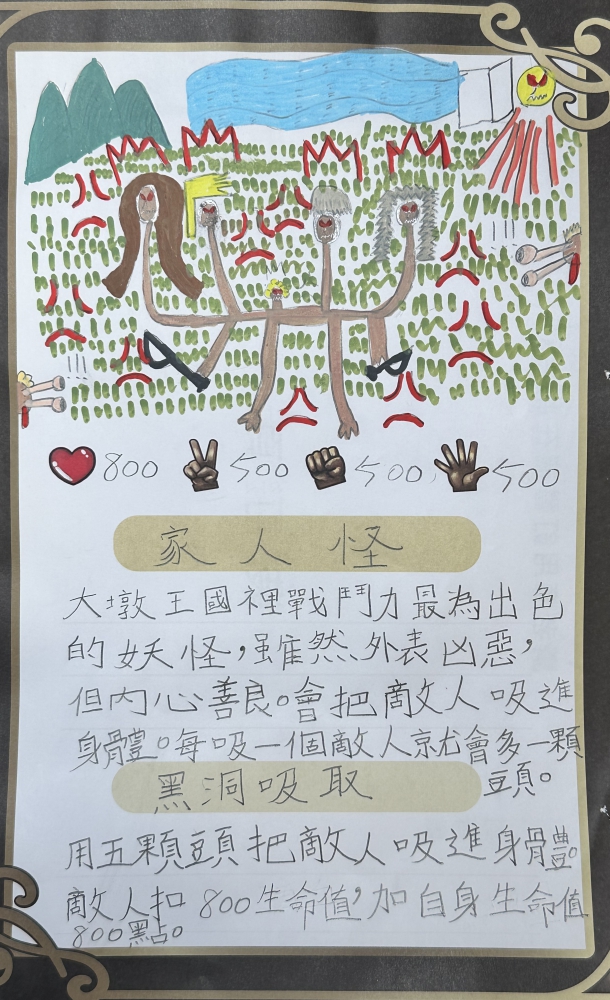 800 500 500 500
家人怪
大墩王國裡戰鬥力最為出色
的妖怪，雖然外表凶惡，
但內心善良。會把敵人吸進
身體。每吸一個敵人就會多一顆
頭。
黑洞吸取
用五顆頭把敵人吸進身體。
敵人扣800生命值，加自身生命值
800點。